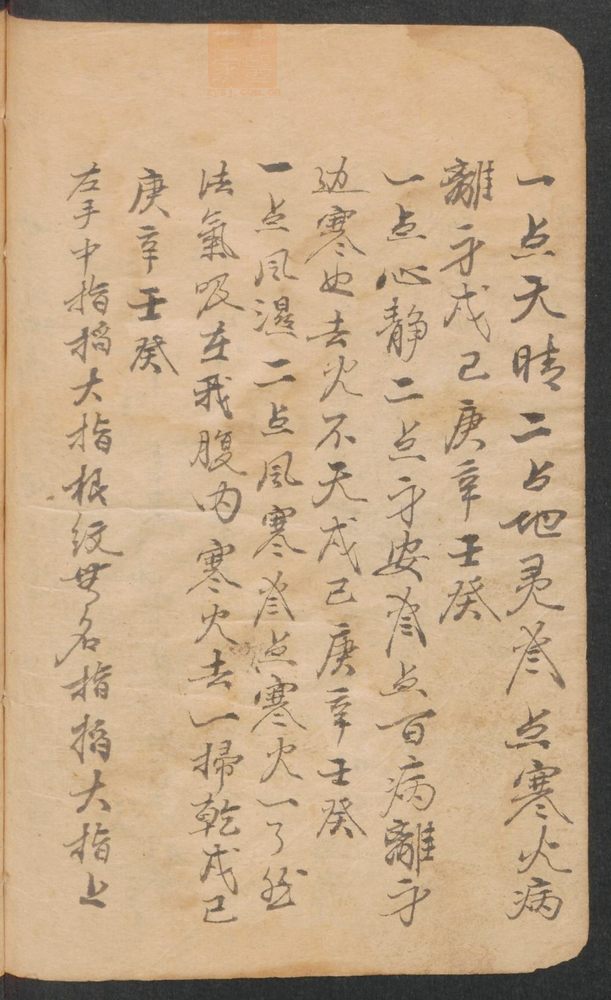 一点天晴二点地灵叁点寒火病
離身戊己庚辛壬癸
一点心静二点身安叁点百病離身
边寒也去火不天戊己庚辛壬癸
一点风濕二点风寒叁点寒火一了然
法氣吸在我腹内寒火去一掃乾戊己
庚辛壬癸
左手中指掐大指根紋無名指掐大指上